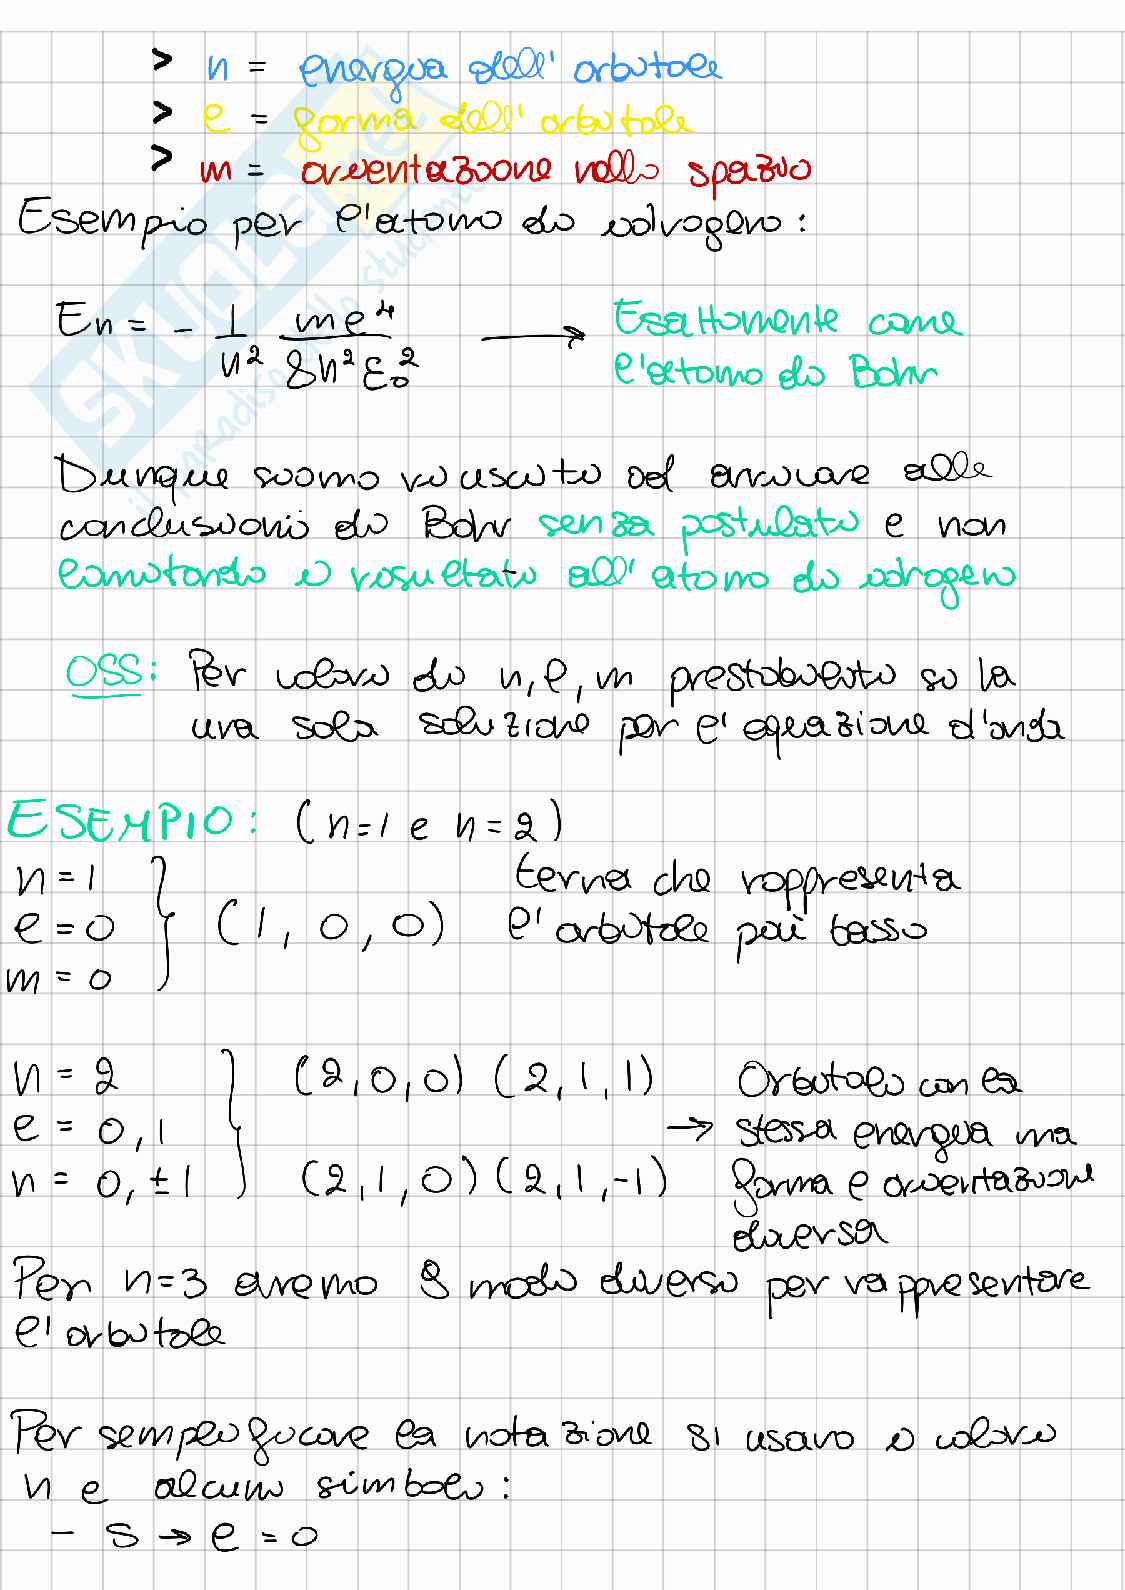 > n = energia dell'orbitale
> l = forma dell'orbitale
> m = orientazione nello spazio
Esempio per l'atomo di idrogeno:
En = - 1/n² me⁴/8h²ε₀² → Esattamente come
l'atomo di Bohr
Dunque siamo riusciti ad arrivare alle
conclusioni di Bohr senza postulati e non
limitando i risultati all'atomo di idrogeno
OSS: Per valori di n, l, m prestabiliti si ha
una sola soluzione per l'equazione d'onda
ESEMPIO: (n=1 e n=2)
n = 1
l = 0 } (1, 0, 0) terna che rappresenta
m = 0 l'orbitale più basso
n = 2 } (2,0,0) (2,1,1) Orbitali con la
l = 0,1 → stessa energia ma
n = 0, ±1 (2,1,0) (2,1,-1) forma e orientazione
diversa
Per n=3 avremo 8 modi diversi per rappresentare
l'orbitale
Per semplificare la notazione si usano i valori
n e alcuni simboli:
- S → l = 0
SKUOLA.net
il paradiso dello studente